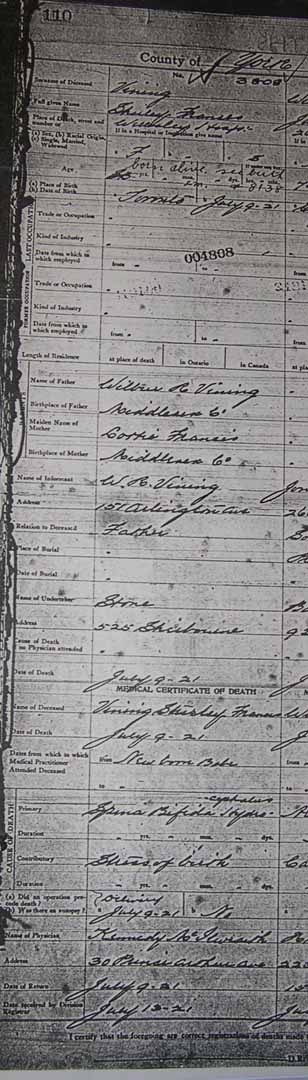 110
County of York
No. 3808
Surname of Deceased Vining
Full given Name Shirley Frances
Place of Death, street and number of Wellesley Hosp.
If in a Hospital or Institution give name
(a) Sex, (b) Racial Origin, (c) Single, Married, Widowed F " S
Age born alive see birth
8138
(a) Place of Birth
(b) Date of Birth
Toronto July 9-21
Trade or Occupation
Kind of Industry
Date from which to which employed from to
004808
LAST OCCUPATION
Trade or Occupation
Kind of Industry
Date from which to which employed from to
FORMER OCCUPATION
Length of Residence at place of death in Ontario in Canada
Name of Father Wilbur R. Vining
Birthplace of Father Middlesex Co
Maiden Name of Mother Francis
Birthplace of Mother Middlesex Co
Name of Informant W. R. Vining
Address 151 Arlington Ave
Relation to Deceased Father
Place of Burial
Date of Burial
Name of Undertaker Stone
Address 525 Sherbourne
Cause of Death if no Physician attended
Date of Death July 9-21
MEDICAL CERTIFICATE OF DEATH
Name of Deceased Vining Shirley Frances
Date of Death July 9-21
Dates from which to which Medical Practitioner Attended Deceased from New born Babe
to
CAUSE OF DEATH
-cephalus
Primary Spina Bifida Hydro-
Duration yrs. mos. dys.
Contributory Stress of birth
Duration yrs. mos. dys.
(a) Did an operation precede death?
(b) Was there an autopsy? July 9-21 No
Name of Physician Kennedy McIlwraith
Address 30 Prince Arthur Ave
Date of Return July 9-21
Date received by Division Registrar July 13-21
I certify that the foregoing are correct registrations of deaths made